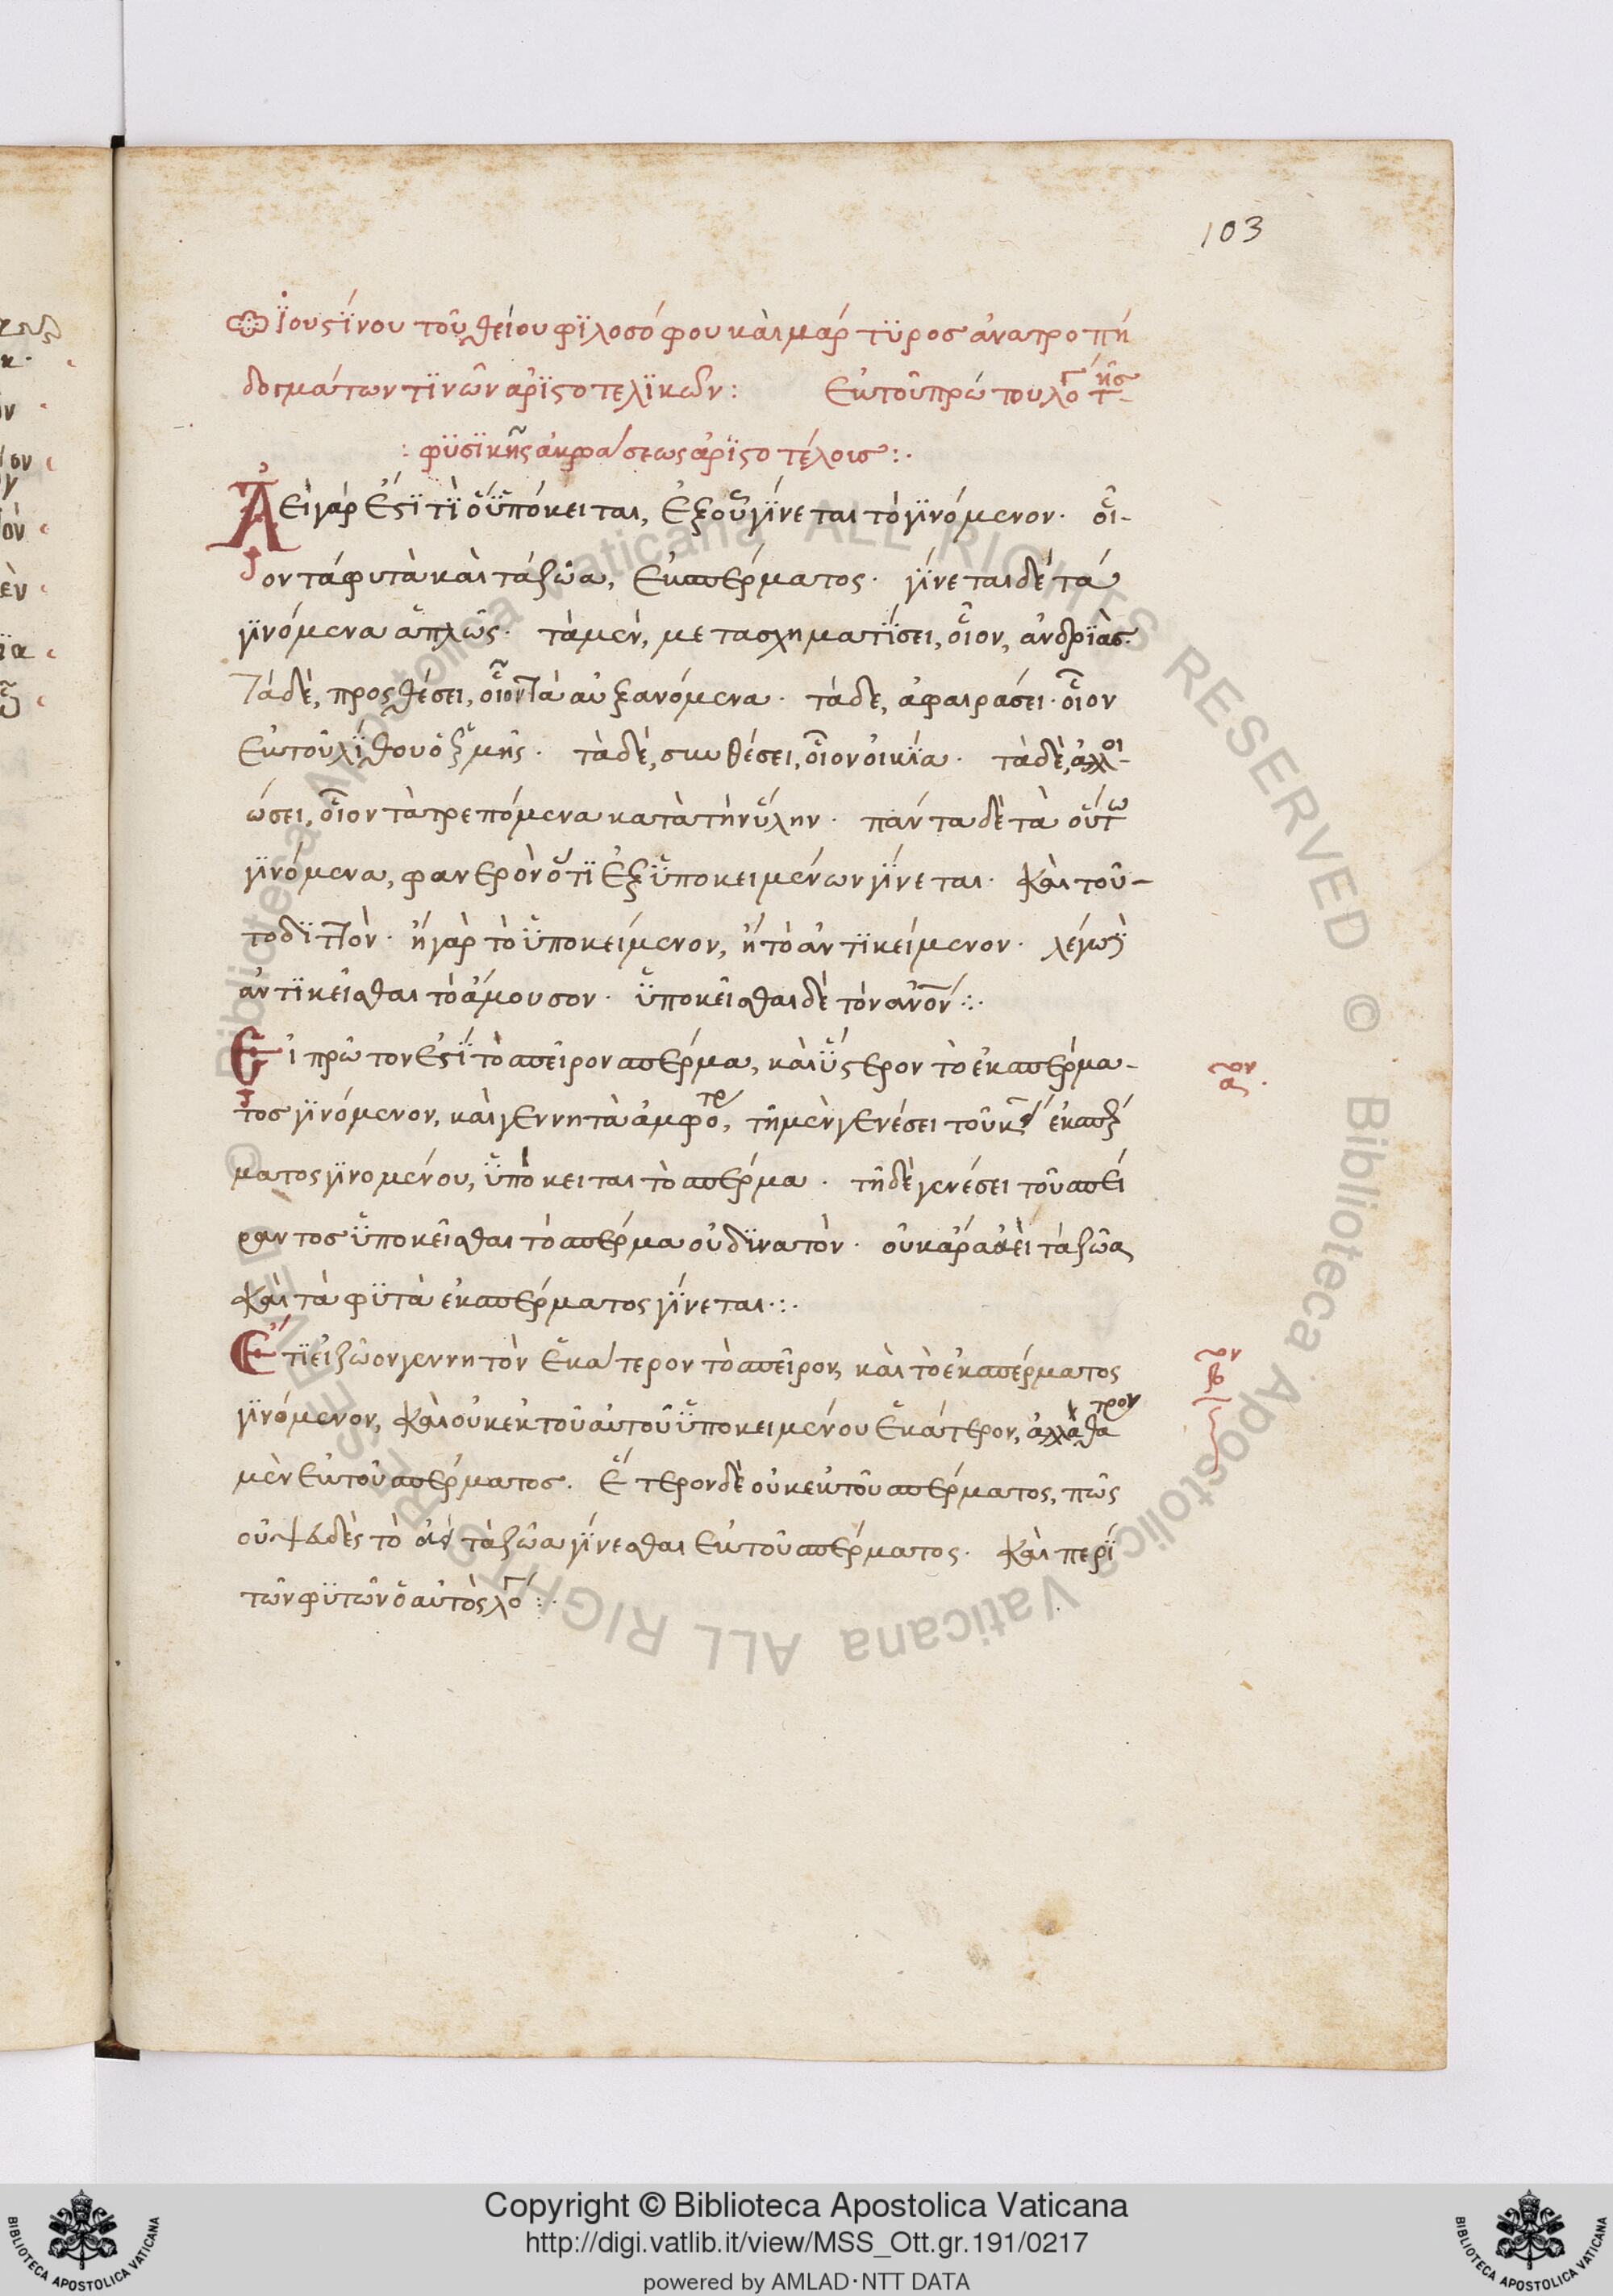 103
Ἰουστίνου τοῦ θείου φιλοσόφου καὶ μάρτυρος ἀνατροπὴ
δογμάτων τινῶν ἀριστοτελικῶν: Ἐκ τοῦ πρώτου λό τῆς
: φυσικῆς ἀκροάσεως ἀριστοτέλους :.
Ἀεὶ γὰρ ἔστι τὶ ὃ ὑπόκειται, ἐξ οὗ γίνεται τὸ γινόμενον. οἷ-
ον τὰ φυτὰ καὶ τὰ ζῶα, ἐκ σπέρματος. γίνεται δὲ τὰ
γινόμενα ἁπλῶς. τὰ μὲν, μετασχηματίσει, οἷον, ἀνδριὰς.
τὰ δὲ, προσθέσει, οἷον τὰ αὐξανόμενα. τὰ δὲ, ἀφαιρέσει. οἷον
ἐκ τοῦ λίθου ὁ ἑρμῆς. τὰ δὲ, συνθέσει, οἷον οἰκία. τὰ δὲ, ἀλλοι-
ώσει, οἷον τὰ τρεπόμενα κατὰ τὴν ὕλην. πάντα δὲ τὰ οὕτω
γινόμενα, φανερὸν ὅτι ἐξ ὑποκειμένων γίνεται. καὶ τοῦ-
το διττὸν. ἢ γὰρ τὸ ὑποκείμενον, ἢ τὸ ἀντικείμενον. λέγω δὲ
ἀντικεῖσθαι τὸ ἄμουσον. ὑποκεῖσθαι δὲ τὸν ἄνον :.
Εἰ πρῶτον ἐστὶ τὸ σπεῖρον σπέρμα, καὶ ὕστερον τὸ ἐκ σπέρμα-
τος γινόμενον, καὶ γεννητὰ ἀμφότερ, τῆ μὲν γενέσει τοῦ ἐκ σπέρ
ματος γινομένου, ὑπόκειται τὸ σπέρμα. τῆ δὲ γενέσει τοῦ σπεί
ραντος ὑποκεῖσθαι τὸ σπέρμα οὐ δυνατὸν. οὐκ ἄρα ἀεὶ τὰ ζῶα
καὶ τὰ φυτὰ ἐκ σπέρματος γίνεται :.
αον.
Ἔτι εἰ ζῶον γεννητὸν ἑκάτερον τὸ σπεῖρον, καὶ τὸ ἐκ σπέρματος
γινόμενον, καὶ οὐκ ἐκ τοῦ αὐτοῦ ὑποκειμένου ἑκάτερον, ἀλλὰ θάτερον
μὲν ἐκ τοῦ σπέρματος. ἕτερον δὲ οὐκ ἐκ τοῦ σπέρματος, πῶς
οὐ ψευδὲς τὸ ἀεὶ τὰ ζῶα γίνεσθαι ἐκ τοῦ σπέρματος. καὶ περὶ
τῶν φυτῶν ὁ αὐτὸς λό :.
βον
Copyright © Biblioteca Apostolica Vaticana
http://digi.vatlib.it/view/MSS_Ott.gr.191/0217
powered by AMLAD·NTT DATA
BIBLIOTECA APOSTOLICA VATICANA
BIBLIOTECA APOSTOLICA VATICANA
© Biblioteca Apostolica Vaticana ALL RIGHTS RESERVED © Biblioteca Apostolica Vaticana ALL RIGHTS RESERVED